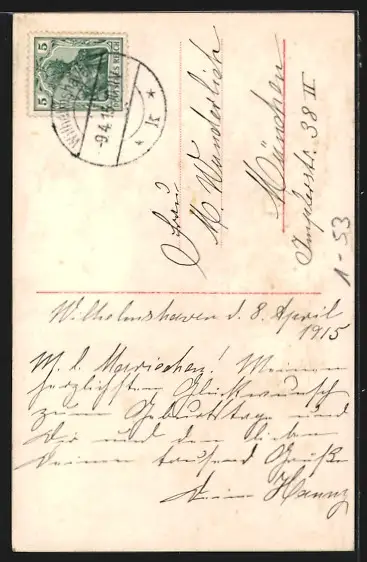 5 5
DEUTSCHES REICH
Wilhelmshaven
-9.4.15
* K *
Frau
M. Wunderlich
München
Implerstr. 38 II
1-53
Wilhelmshaven d. 8. April
1915
M. l. Mariechen! Meinen
herzlichsten Glückwunsch
zum Geburtstage und
Dir und den lieben
Deinen tausend Grüße
Deine Hanny